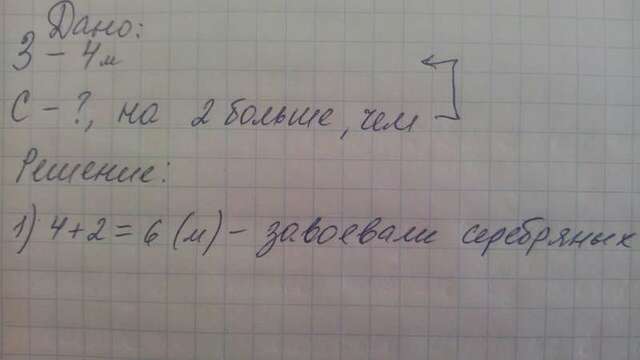 Дано:
З - 4м
С - ?, на 2 больше, чем
Решение:
1) 4+2=6 (м) - завоевали серебряных